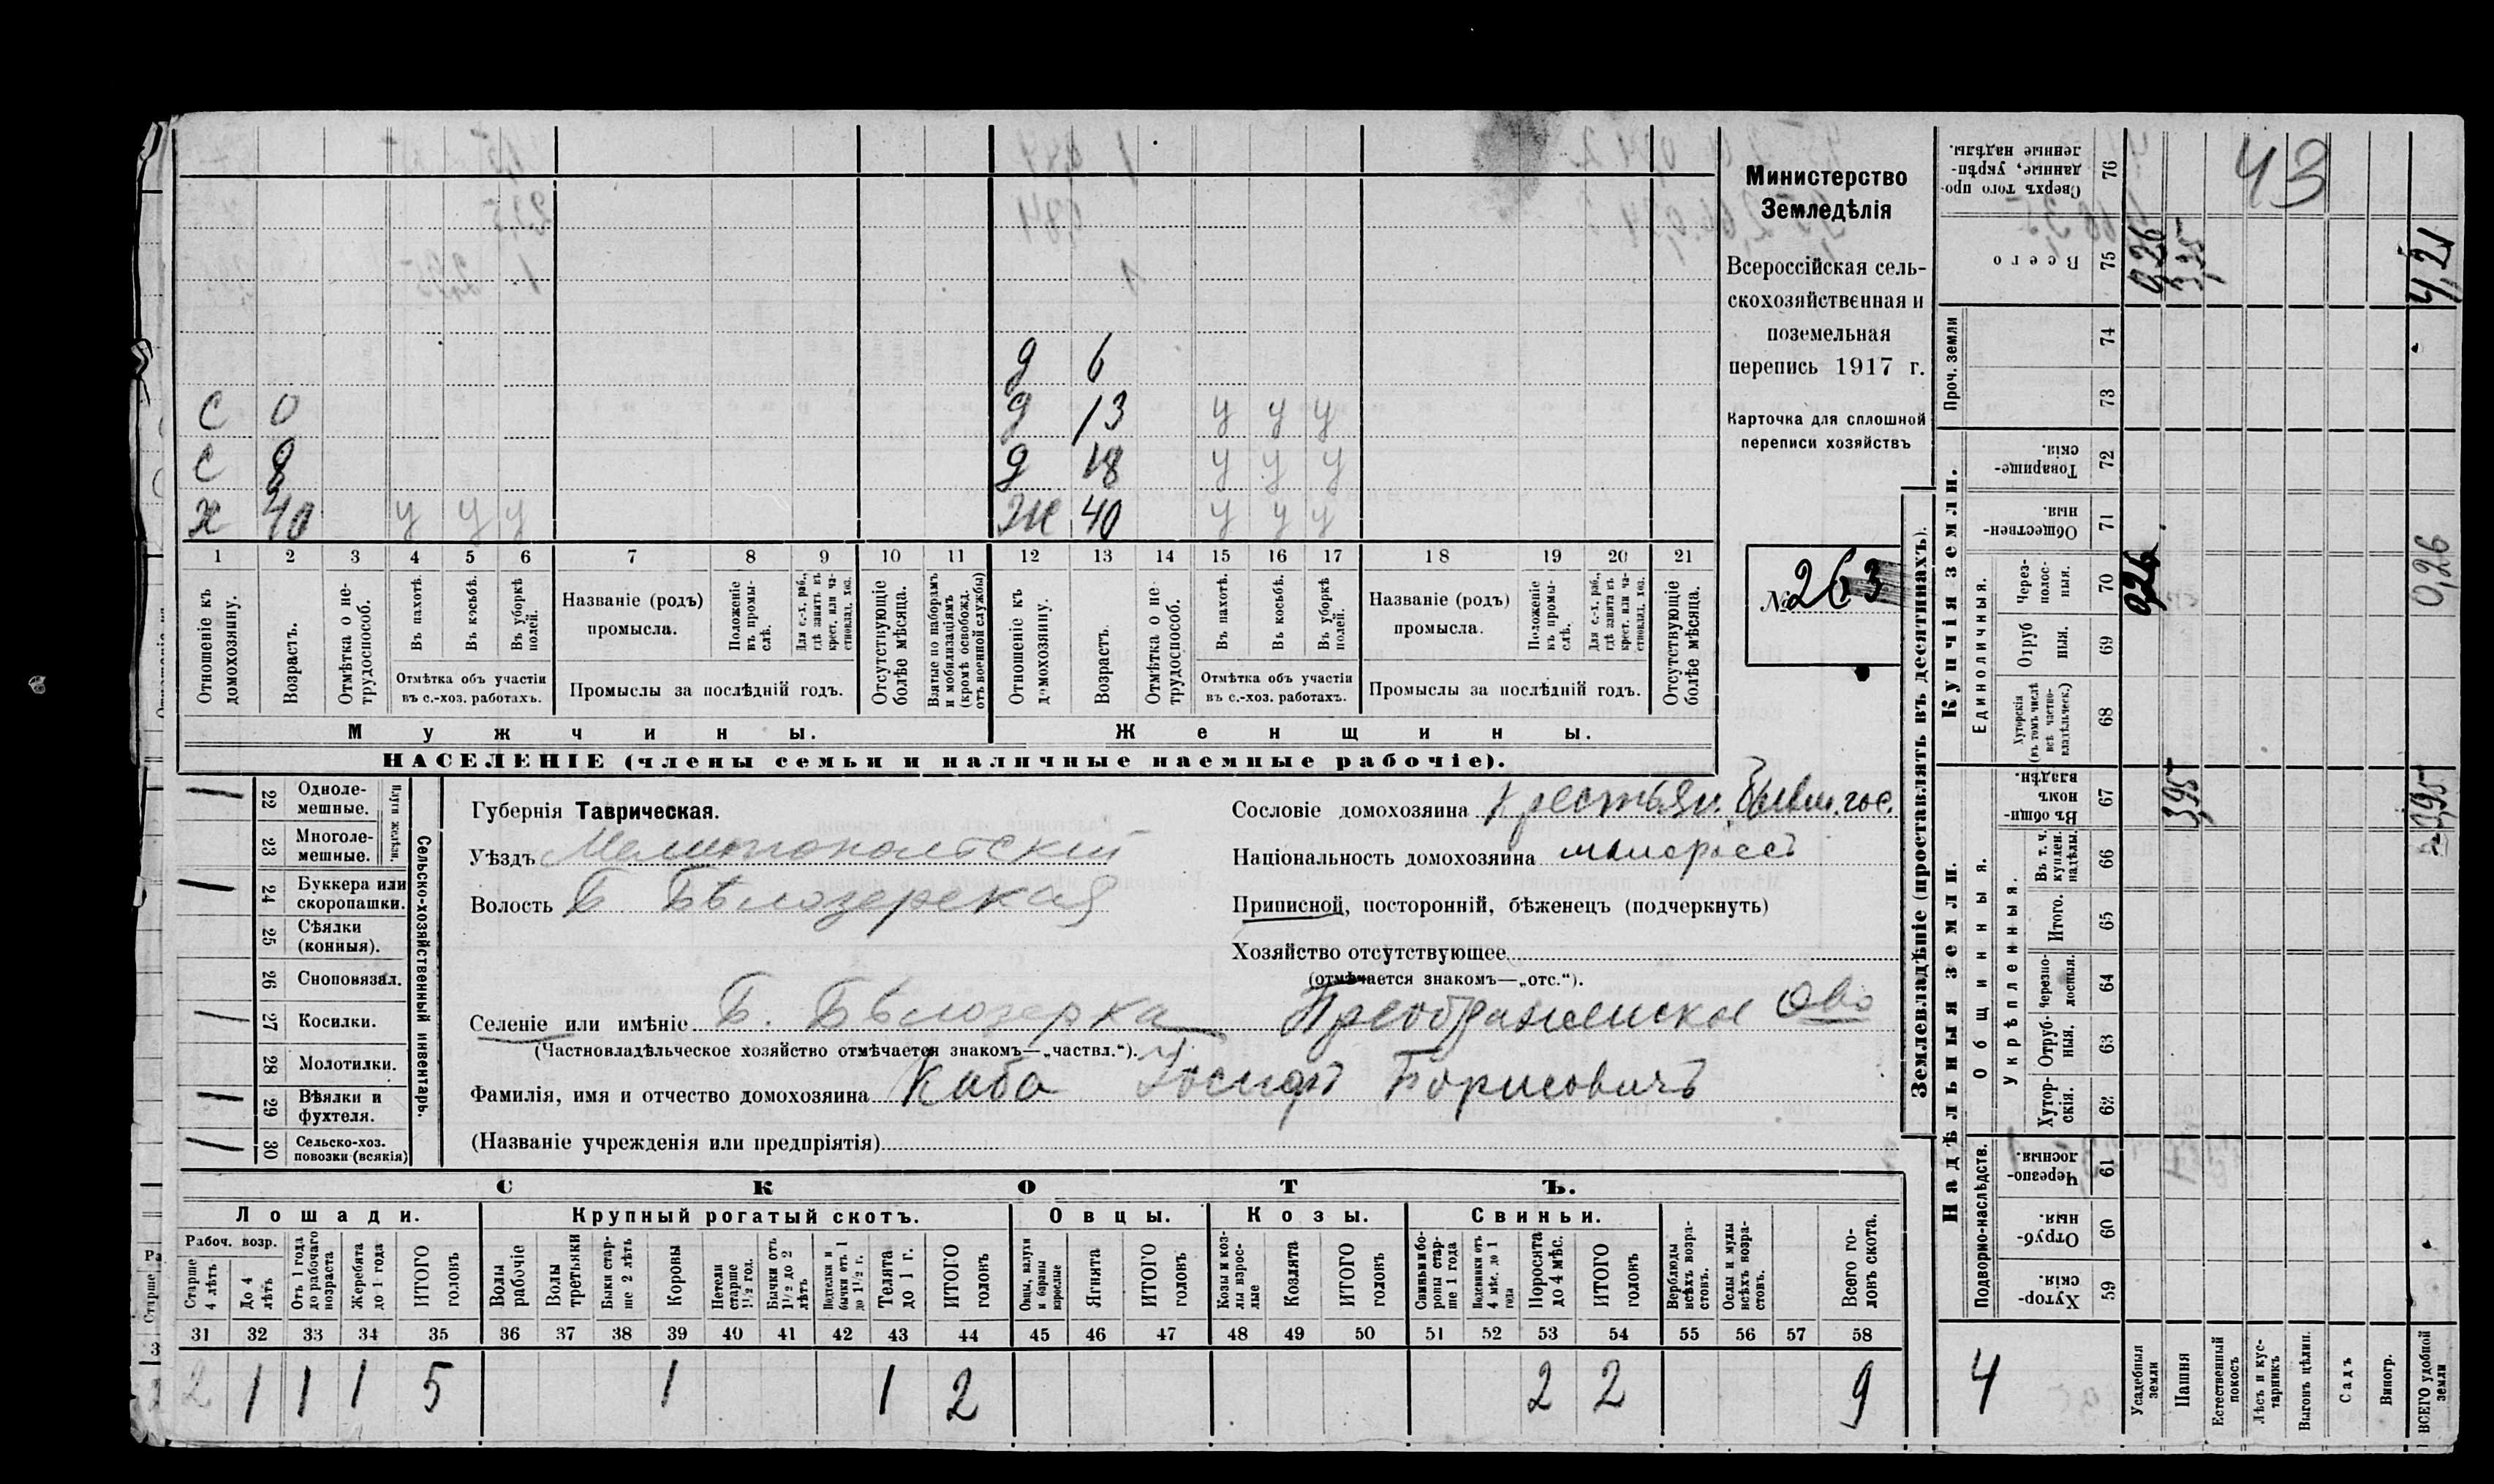 Министерство
Земледѣлія
Всероссійская сель-
скохозяйственная и
поземельная
перепись 1917 г.
Карточка для сплошной
переписи хозяйствъ
№ 263
д 6
С 0 д 13 у у у
С 8 д 18 у у у
х 40 у у у ж 40 у у у
1 2 3 4 5 6 7 8 9 10 11 12 13 14 15 16 17 18 19 20 21
Отношеніе къ домохозяину.
Возрастъ.
Отмѣтка о не-трудоспособ.
Въ пахотѣ.
Въ косьбѣ.
Въ уборкѣ полей.
Отмѣтка объ участіи въ с.-хоз. работахъ.
Названіе (родъ) промысла.
Положеніе въ промыслѣ.
Для с.-х. раб., гдѣ занятъ въ крест. или ча-стновлад. хоз.
Промыслы за послѣдній годъ.
Отсутствующіе болѣе мѣсяца.
Взятые по наборамъ и мобилизаціямъ (кромѣ освобожд. отъ военной службы)
Отношеніе къ домохозяину.
Возрастъ.
Отмѣтка о не-трудоспособ.
Въ пахотѣ.
Въ косьбѣ.
Въ уборкѣ полей.
Отмѣтка объ участіи въ с.-хоз. работахъ.
Названіе (родъ) промысла.
Положеніе въ промы-слѣ.
Для с.-х. раб., гдѣ занята въ крест. или ча-стновлад. хоз.
Промыслы за послѣдній годъ.
Отсутствующіе болѣе мѣсяца.
Мужчины. Женщины.
НАСЕЛЕНІЕ (члены семьи и наличные наемные рабочіе).
Сельско-хозяйственный инвентарь.
Плуги желѣзн.
22 Одноле-мешные.
23 Многоле-мешные.
24 Буккера или скоропашки.
25 Сѣялки (конныя).
26 Сноповязал.
27 Косилки.
28 Молотилки.
29 Вѣялки и фухтеля.
30 Сельско-хоз. повозки (всякія)
Губернія Таврическая.
Уѣздъ Мелитопольскій
Волость Б. Бѣлозерская
Селеніе или имѣніе Б. Бѣлозерка Преображенское Ово
(Частновладѣльческое хозяйство отмѣчается знакомъ—„частвл.“).
Фамилія, имя и отчество домохозяина Каба Іосифъ Борисовичъ
(Названіе учрежденія или предпріятія)
Сословіе домохозяина крестьян. бывш. гос.
Національность домохозяина малороссъ
Приписной, посторонній, бѣженецъ (подчеркнуть)
Хозяйство отсутствующее
(отмѣчается знакомъ—„отс.“).
СКОТЪ.
Лошади. Крупный рогатый скотъ. Овцы. Козы. Свиньи.
Рабоч. возр.
Старше 4 лѣтъ
До 4 лѣтъ
Отъ 1 года до рабочаго возраста
Жеребята до 1 года
ИТОГО головъ
Волы рабочіе
Волы третьяки
Быки стар-ше 2 лѣтъ
Коровы
Нетели старше 1½ год.
Бычки отъ 1½ до 2 лѣтъ
Подтелки и бычки отъ 1 до 1½ г.
Телята до 1 г.
ИТОГО головъ
Овцы, валухи и бараны взрослые
Ягнята
ИТОГО головъ
Козы и коз-лы взрос-лые
Козлята
ИТОГО головъ
Свиньи и бо-ровы стар-ше 1 года
Подсвинки отъ 4 мѣс. до 1 года
Поросята до 4 мѣс.
ИТОГО головъ
Верблюды всѣхъ возра-стовъ.
Ослы и мулы всѣхъ возра-стовъ.
Всего го-ловъ скота.
31 32 33 34 35 36 37 38 39 40 41 42 43 44 45 46 47 48 49 50 51 52 53 54 55 56 57 58
2 1 1 1 5 1 1 2 2 2 9
Землевладѣніе (проставлять въ десятинахъ).
Надѣльныя земли. Купчія земли. Проч. земли
Подворно-наслѣдств.
Общинныя.
Укрѣпленныя.
Единоличныя.
59 Хутор-скія.
60 Отруб-ныя.
61 Черезпо-лосныя.
62 Хутор-скія.
63 Отруб-ныя.
64 Черезпо-лосныя.
65 Итого.
66 Въ т. ч. куплен. надѣлы.
67 Въ общи-номъ владѣн.
68 Хуторскія (въ томъ числѣ всѣ частно-владѣльческ.)
69 Отруб-ныя.
70 Через-полос-ныя.
71 Обществен-ныя.
72 Товарище-скія.
73
74
75 Всего
76 Сверхъ того про-данные, укрѣп-ленные надѣлы.
4
Усадебныя земли 0,26 0,26
Пашня 3,95 3,95
Естественный покосъ
Лѣсъ и кус-тарникъ
Выгонъ цѣлин.
Садъ
Виногр.
ВСЕГО удобной земли 3,95 0,26 4,21
43